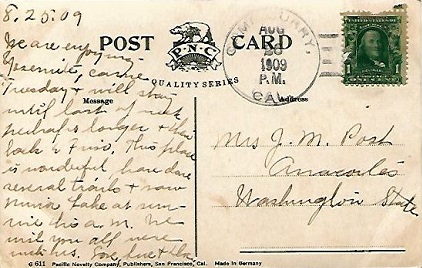 8.25.09
We are enjoying
Yosemite, came
Tuesday & will stay
until last of week
perhaps longer & then
back to This place
is wonderful have done
several trails & saw
mirror lake at sun
rise this a.m. We
wish you all were
with us. Love
POST CARD
P.N.C.
QUALITY SERIES
Message
Address
CAMP CURRY,
AUG
1909
P.M.
CAL.
Mrs J. M. Post
Anacortes
Washington State
G 611 Pacific Novelty Company, Publishers, San Francisco, Cal. Made in Germany